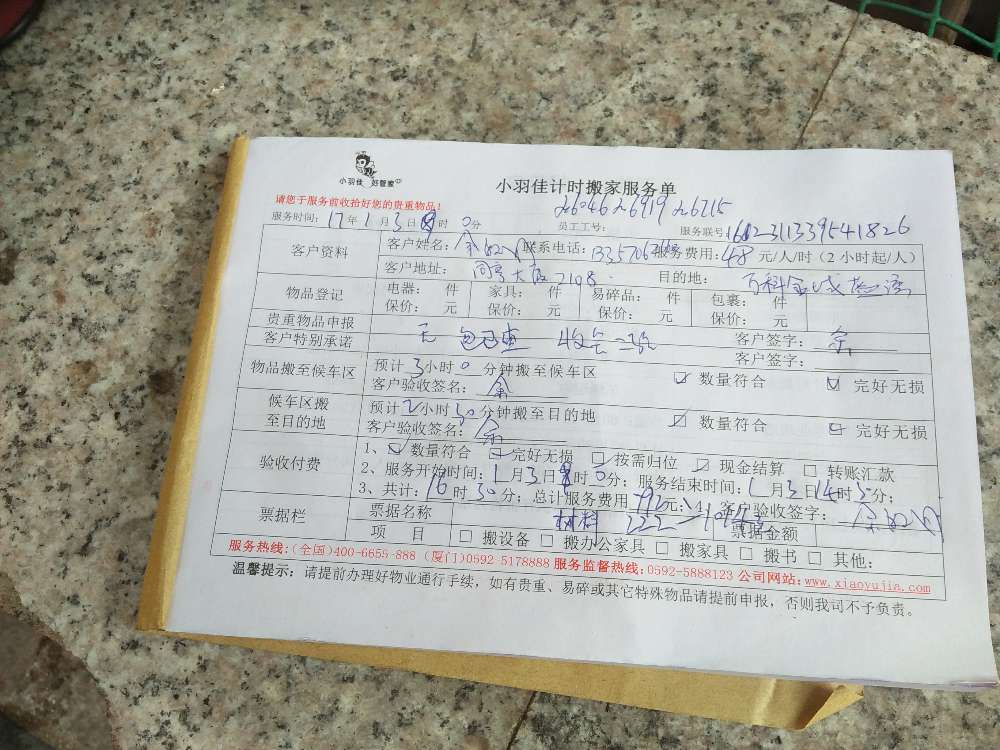 小羽佳 好管家
小羽佳计时搬家服务单
请您于服务前收拾好您的贵重物品!
26046 26919 26715
服务时间: 17年1月3日8时0分 员工工号: 服务联号:
客户资料 客户姓名: 联系电话: 服务费用: 48元/人/时(2小时起/人)
客户地址: 2108 目的地:
物品登记 电器: 件 家具: 件 易碎品: 件 包裹: 件
保价: 元 保价: 元 保价: 元 保价: 元
贵重物品申报 无 客户签字: 余
客户特别承诺 客户签字:
物品搬至候车区 预计3小时0分钟搬至候车区 数量符合 完好无损
客户验收签名: 余
候车区搬至目的地 预计2小时30分钟搬至目的地 数量符合 完好无损
客户验收签名: 余
验收付费 1、数量符合 完好无损 按需归位 现金结算 转账汇款
2、服务开始时间: 1月3日8时0分; 服务结束时间: 1月3日14时 分;
3、共计: 16时30分; 总计服务费用 792元; 客户验收签字:
票据栏 票据名称 材料 222 票据金额
项 目 搬设备 搬办公家具 搬家具 搬书 其他:
服务热线:(全国)400-6655-888 (厦门)0592 5178888 服务监督热线:0592-5888123 公司网站:www.xiaoyujia.com
温馨提示: 请提前办理好物业通行手续, 如有贵重、易碎或其它特殊物品请提前申报, 否则我司不予负责。